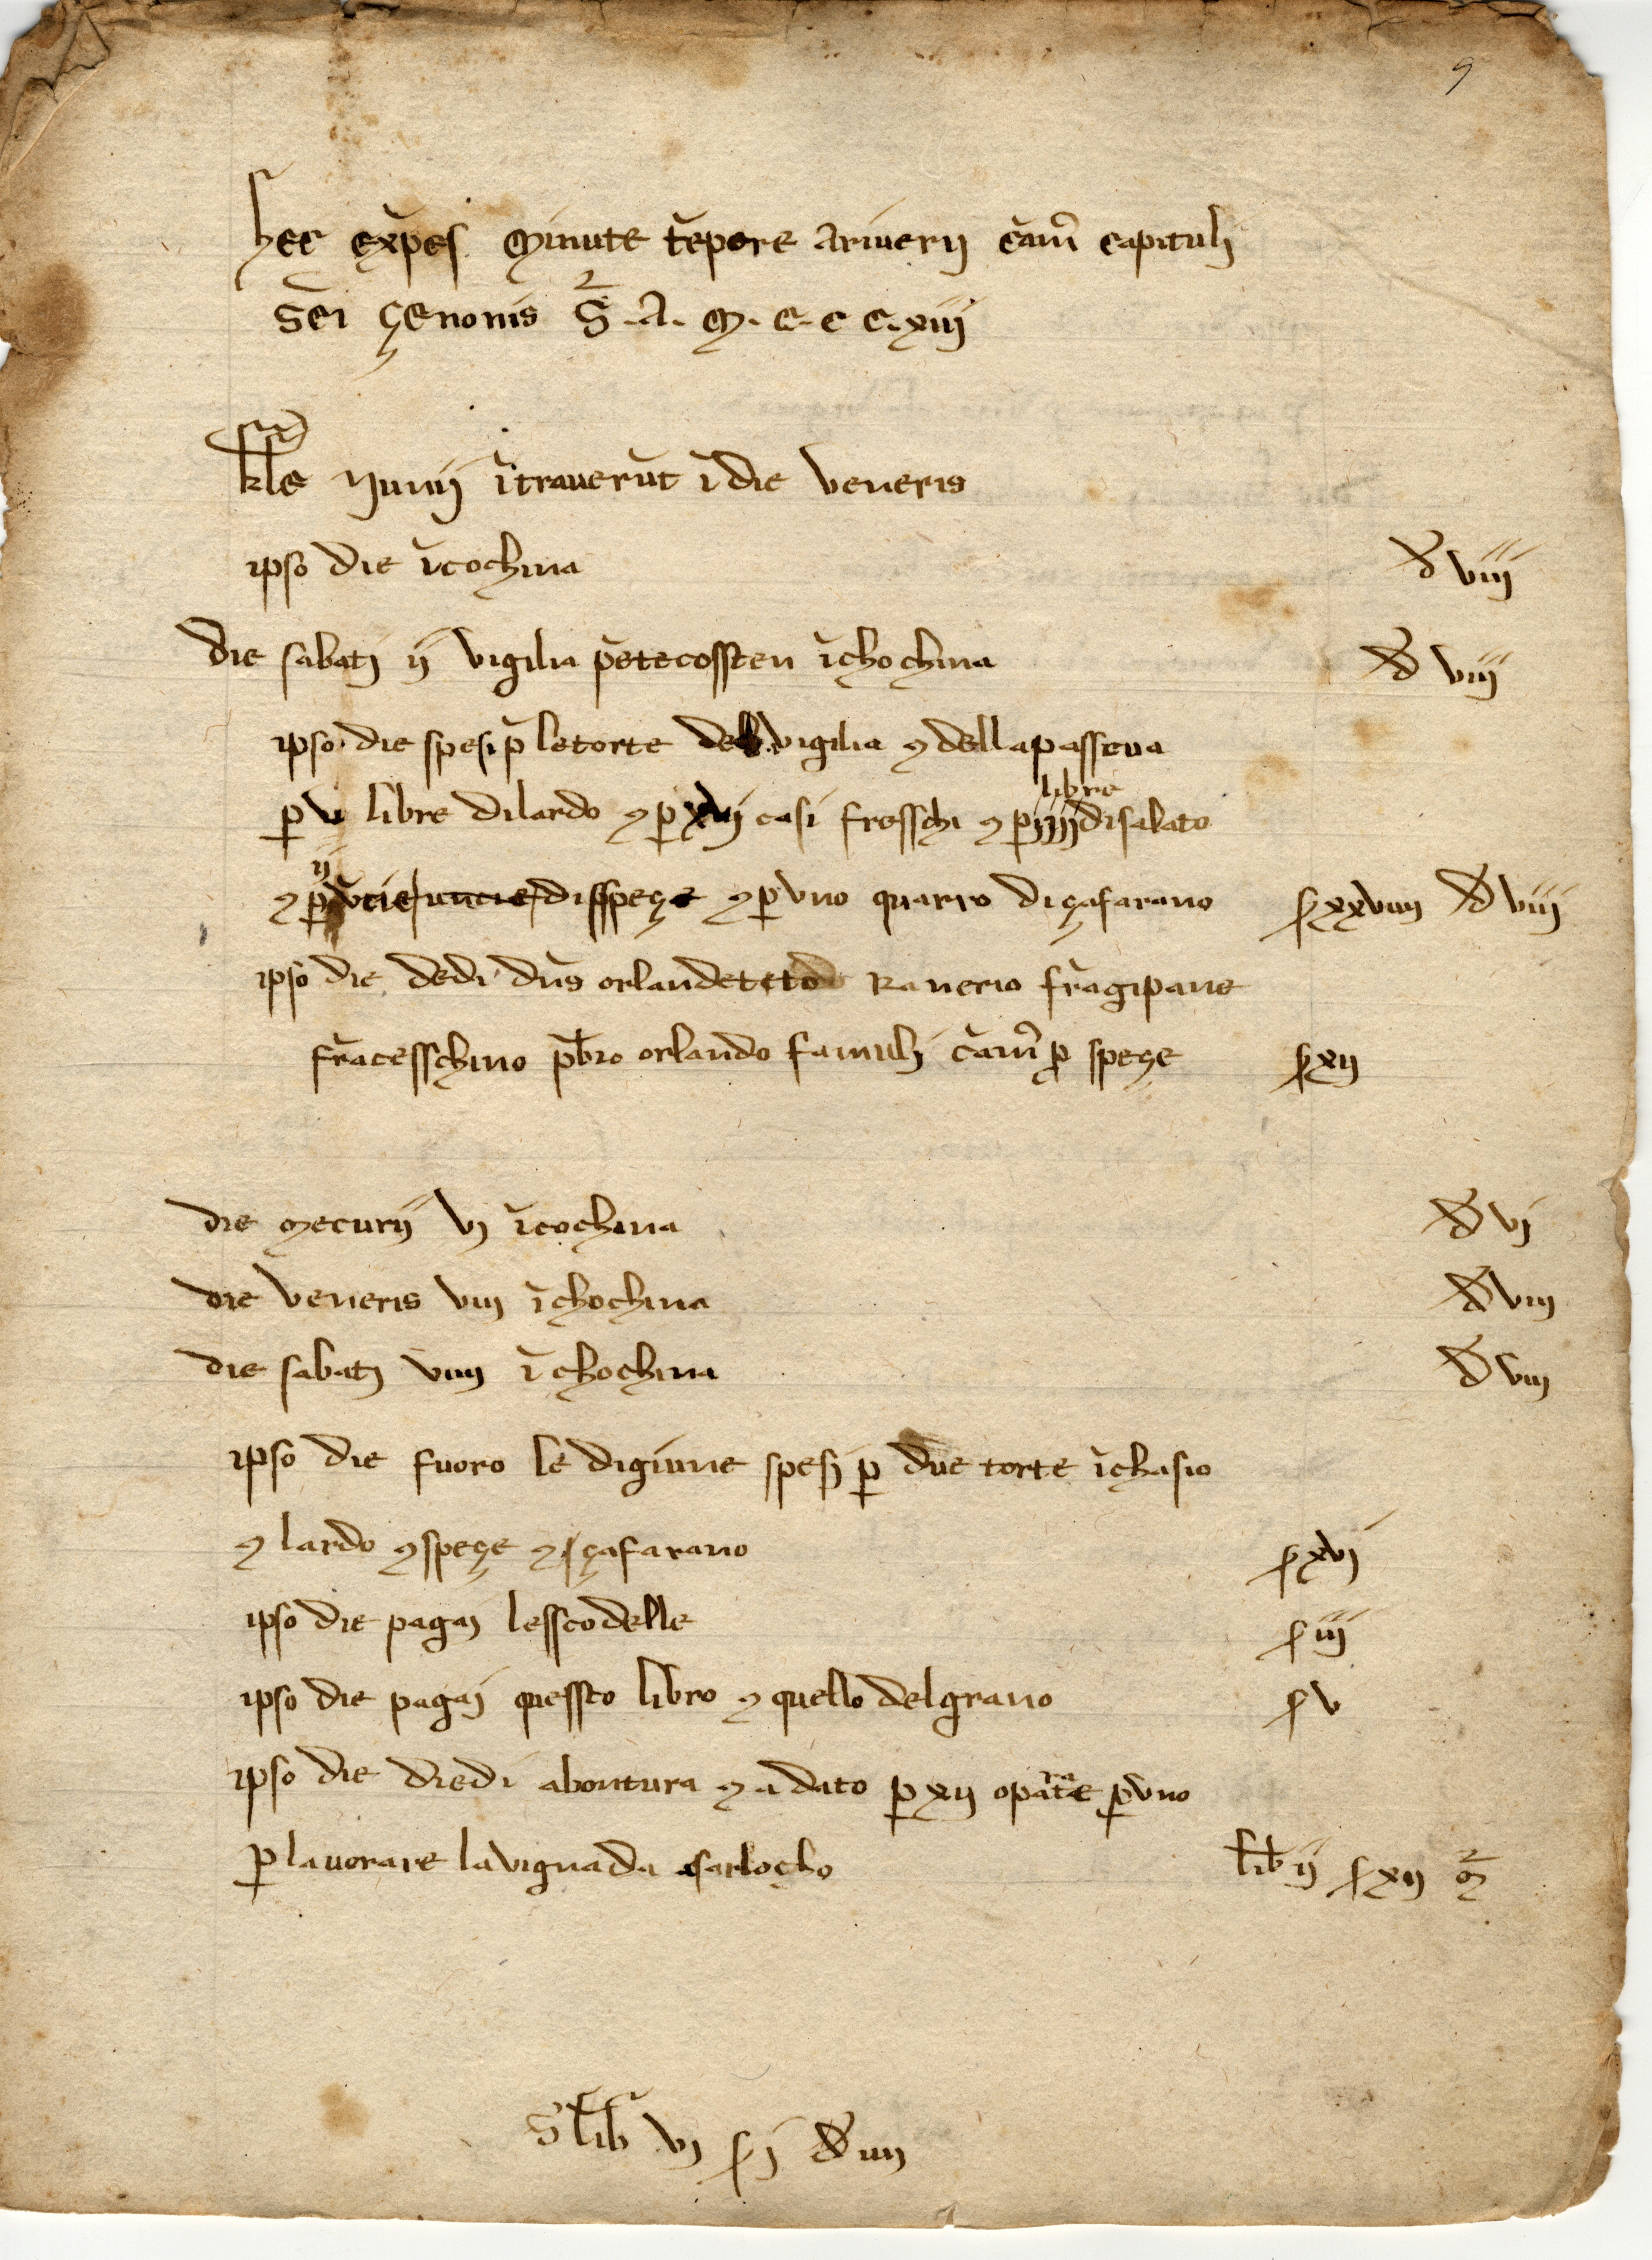 9
hec exp̄es. Minute t̄epore Ariuerij cam̄ capituli
S̄ci çenonis S̄ .A. M. C. C C. xiij
kl̄e Junij ītrauerūt ī die veneris
ipso die īcochina đ viij
die sabati ij vigilia p̄etecossten īchochina đ viij
ipso die spesi p̄ letorte del vigilia ⁊ dellapasscua
ꝑ v libre dilardo ⁊ ꝑ xvij casi fresschi ⁊ ꝑ iiij libre disalato
⁊ ꝑ ij ūcie disspeçe ⁊ ꝑ vno quarro diçafarano ſ xxviiij đ viij
ipso die dedi dn̄s orlandetto Ranerio frāgipane
frācesschino pb̄ro orlando famuli cam̄ ꝓ speçe ſ xij
die mecurij vj īcochina đ vj
die veneris viij īchochina đ viij
die sabati viiij īchochina đ viij
ipso die fuoro le digiune spesi ꝑ due torte īchasio
⁊ lardo ⁊ speçe ⁊ çafarano ſ xvj
ipso die pagaj lesscodelle ſ iij
ipso die pagaj quessto libro ⁊ quello delgrano ſ v
ipso die diedi abontura ⁊ a dato ꝑ xij opat̄e ra ꝑ vno
ꝑ lauorare lavignada sarlocho lib̄ ij ſ xij
S lib̄ vj ſ j đ iiij